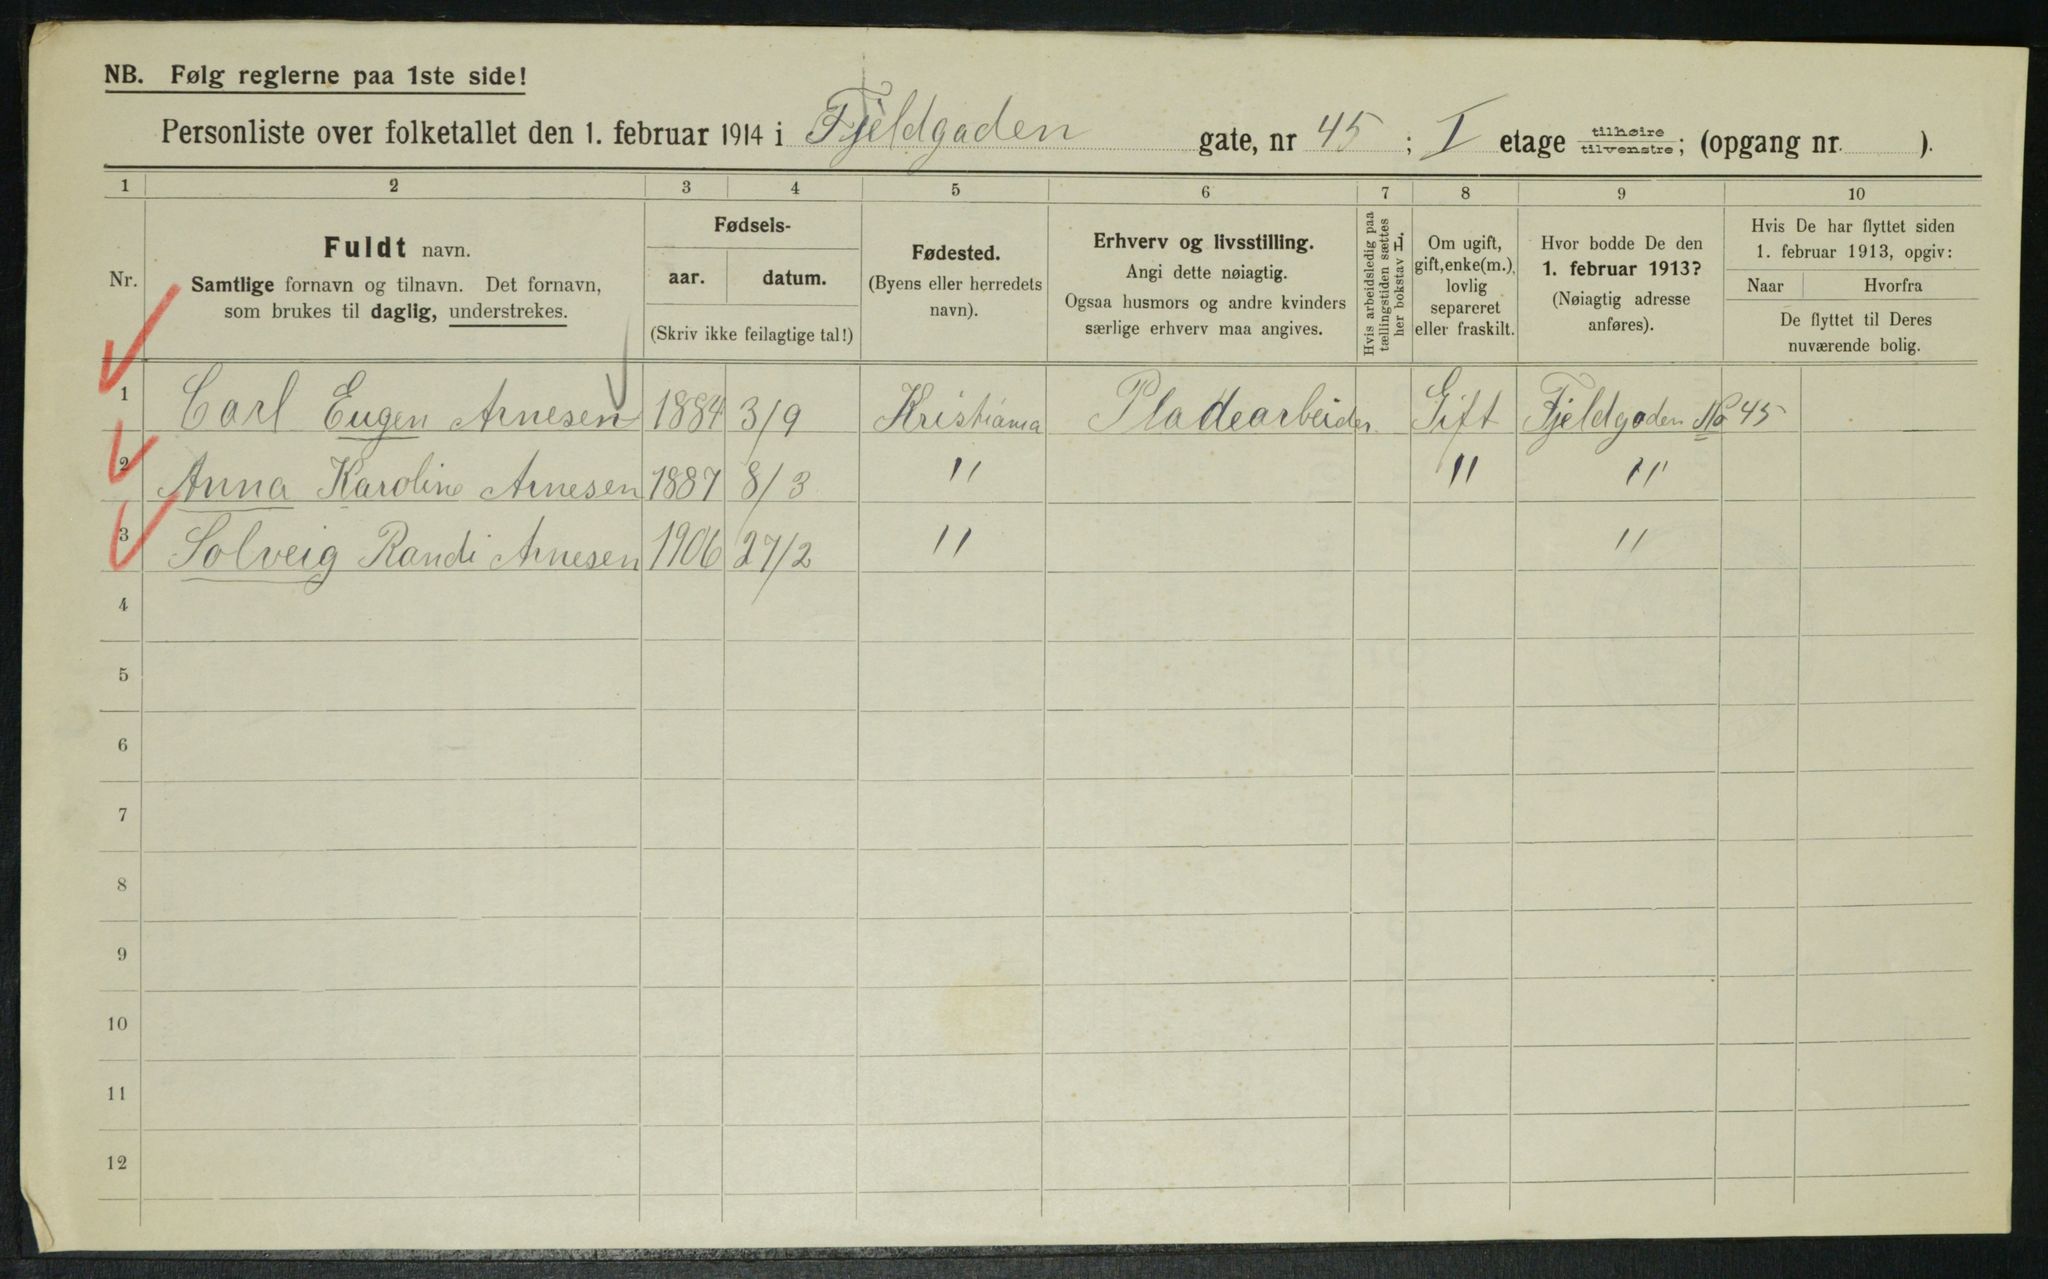 NB. Følg reglerne paa 1ste side!
Personliste over folketallet den 1. februar 1914 i Fjeldgaden gate, nr 45 ; I etage tilhøire tilvenstre; (opgang nr. ).
1 2 3 4 5 6 7 8 9 10
Nr.
Fuldt navn.
Samtlige fornavn og tilnavn. Det fornavn,
som brukes til daglig, understrekes.
Fødsels-
aar. datum.
(Skriv ikke feilagtige tal!)
Fødested.
(Byens eller herredets
navn).
Erhverv og livsstilling.
Angi dette nøiagtig.
Ogsaa husmors og andre kvinders
særlige erhverv maa angives.
Hvis arbeidsledig paa
tællingstiden sættes
her bokstav L.
Om ugift,
gift, enke(m.),
lovlig
separeret
eller fraskilt.
Hvor bodde De den
1. februar 1913?
(Nøiagtig adresse
anføres).
Hvis De har flyttet siden
1. februar 1913, opgiv:
Naar Hvorfra
De flyttet til Deres
nuværende bolig.
1 Carl Eugen Arnesen 1884 3/9 Kristiania Pladearbeider Gift Fjeldgaden No 45
2 Anna Karoline Arnesen 1887 8/3 " " "
3 Solveig Randi Arnesen 1906 27/2 " "
4
5
6
7
8
9
10
11
12